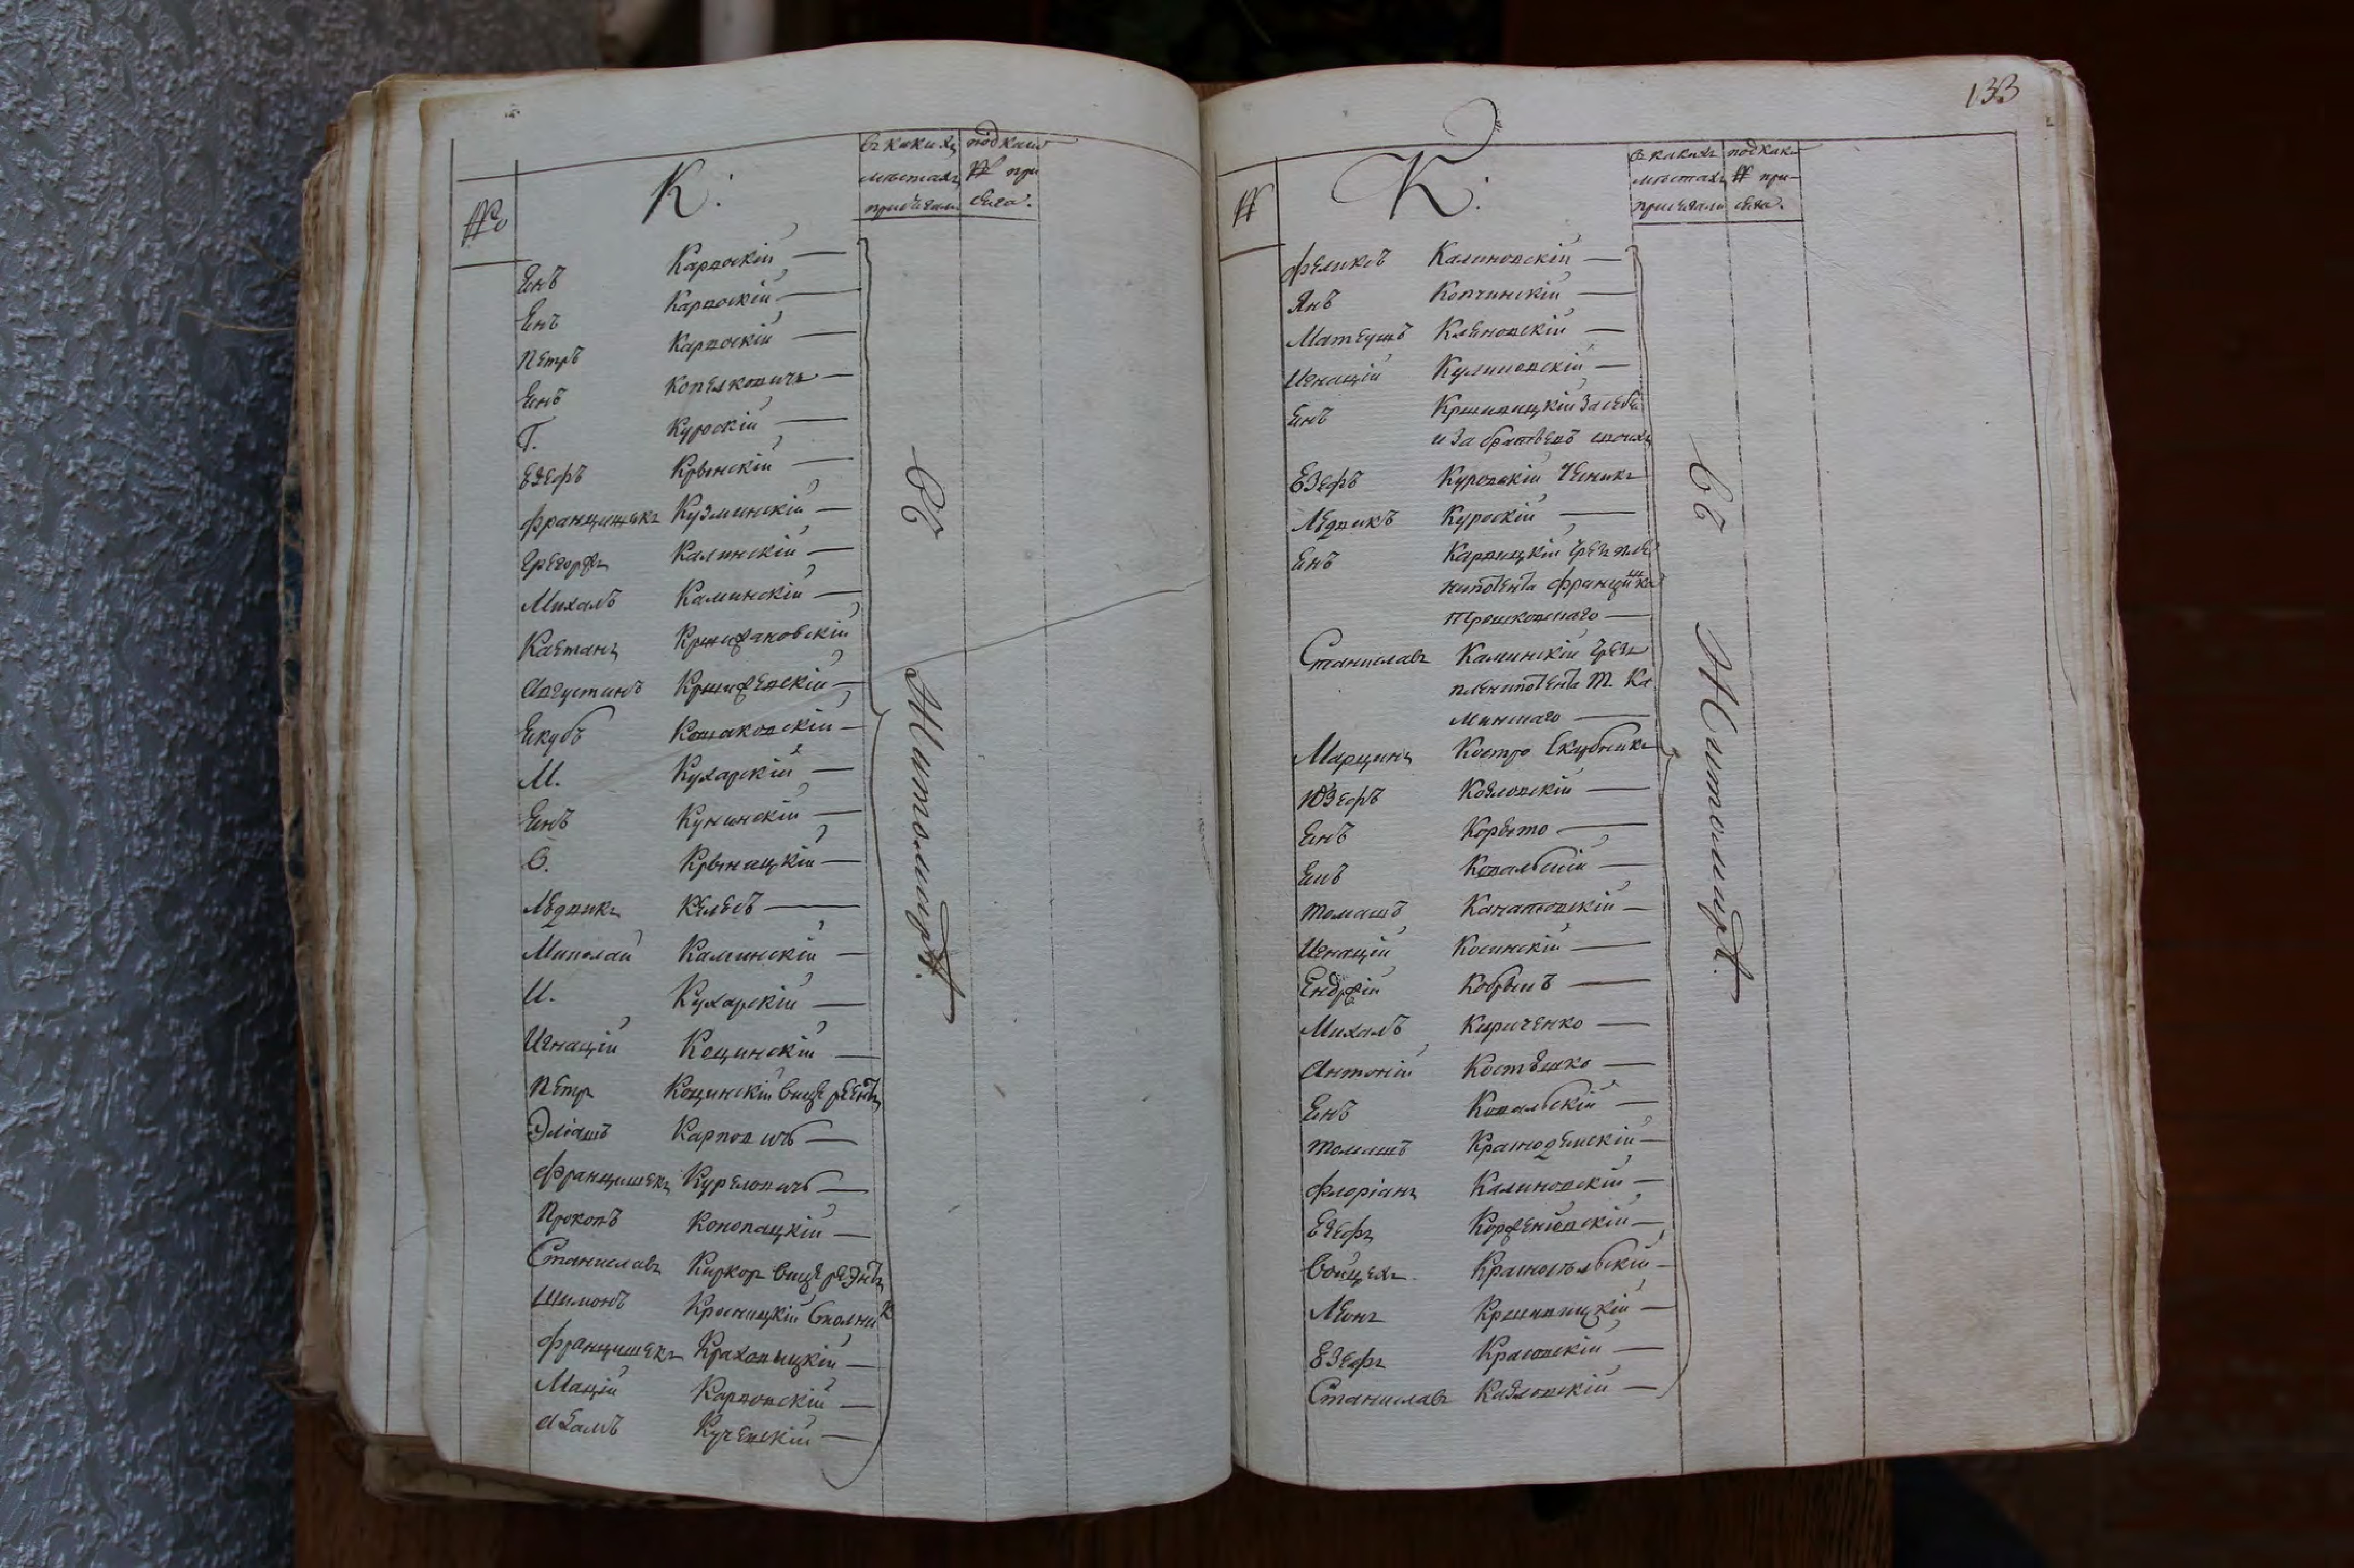 К.
въ какихъ
мѣстахъ
присягали
под каки
№ при
сяга.
№
Янъ Карвоскій —
Янъ Карвоскій —
Петръ Карвоскій —
Янъ Копелковичъ —
Г. Куроскій —
Езефъ Крынскій —
Францишекъ Кузминскій —
Грегоржъ Калинскій —
Михалъ Каминскій —
Каетанъ Кржижановскій
Августинъ Кржижевскій —
Якубъ Кошаковскій —
М. Кухарскій —
Янъ Кунинскій —
О. Крыницкій —
Лѣдвикъ Кельсъ —
Миколай Каминскій —
И. Кухарскій —
Игнацій Кощинскій —
Петръ Кощинскій вице регентъ
Эліашъ Карповичъ —
Францишекъ Куреловичъ —
Прокопъ Конопацкій —
Станиславъ Киркор вице регэнтъ
Шимонъ Кросницкій Столник
Францишекъ Краховицкій —
Мацій Карвовскій —
Адамъ Кучевскій —
въ Житомирѣ.
133
К.
въ какихъ
мѣстахъ
присягали
под каки
№ при-
сяга.
№
Феликсъ Калиновскій —
Янъ Копчинскій —
Матеушъ Клѣновскій —
Игнацій Куликовскій —
Янъ Кршивицкій за себя
и за братьевъ своихъ
Езефъ Куровскій Чесникъ
Лѣдвикъ Куроскій —
Янъ Карвицкій чрезъ пле
нипотента Францишка
Терешковскаго —
Станиславъ Каминскій чрезъ
пленипотента Т. Ка
минскаго —
Марцинъ Костро Скарбникъ
Юзефъ Козловскій —
Янъ Корыто —
Янъ Ковальскій —
Томашъ Канатовскій —
Игнацій Косинскій —
Ендржій Кобрынъ —
Михалъ Кириченко —
Антоній Костѣшко —
Янъ Ковальскій —
Томашъ Красноденскій —
Флоріанъ Калиновскій —
Езефъ Корженіовскій —
Войцехъ Красносѣльскій —
Леонъ Кршивицкій —
Езефъ Красовскій —
Станиславъ Козловскій —
въ Житомирѣ.